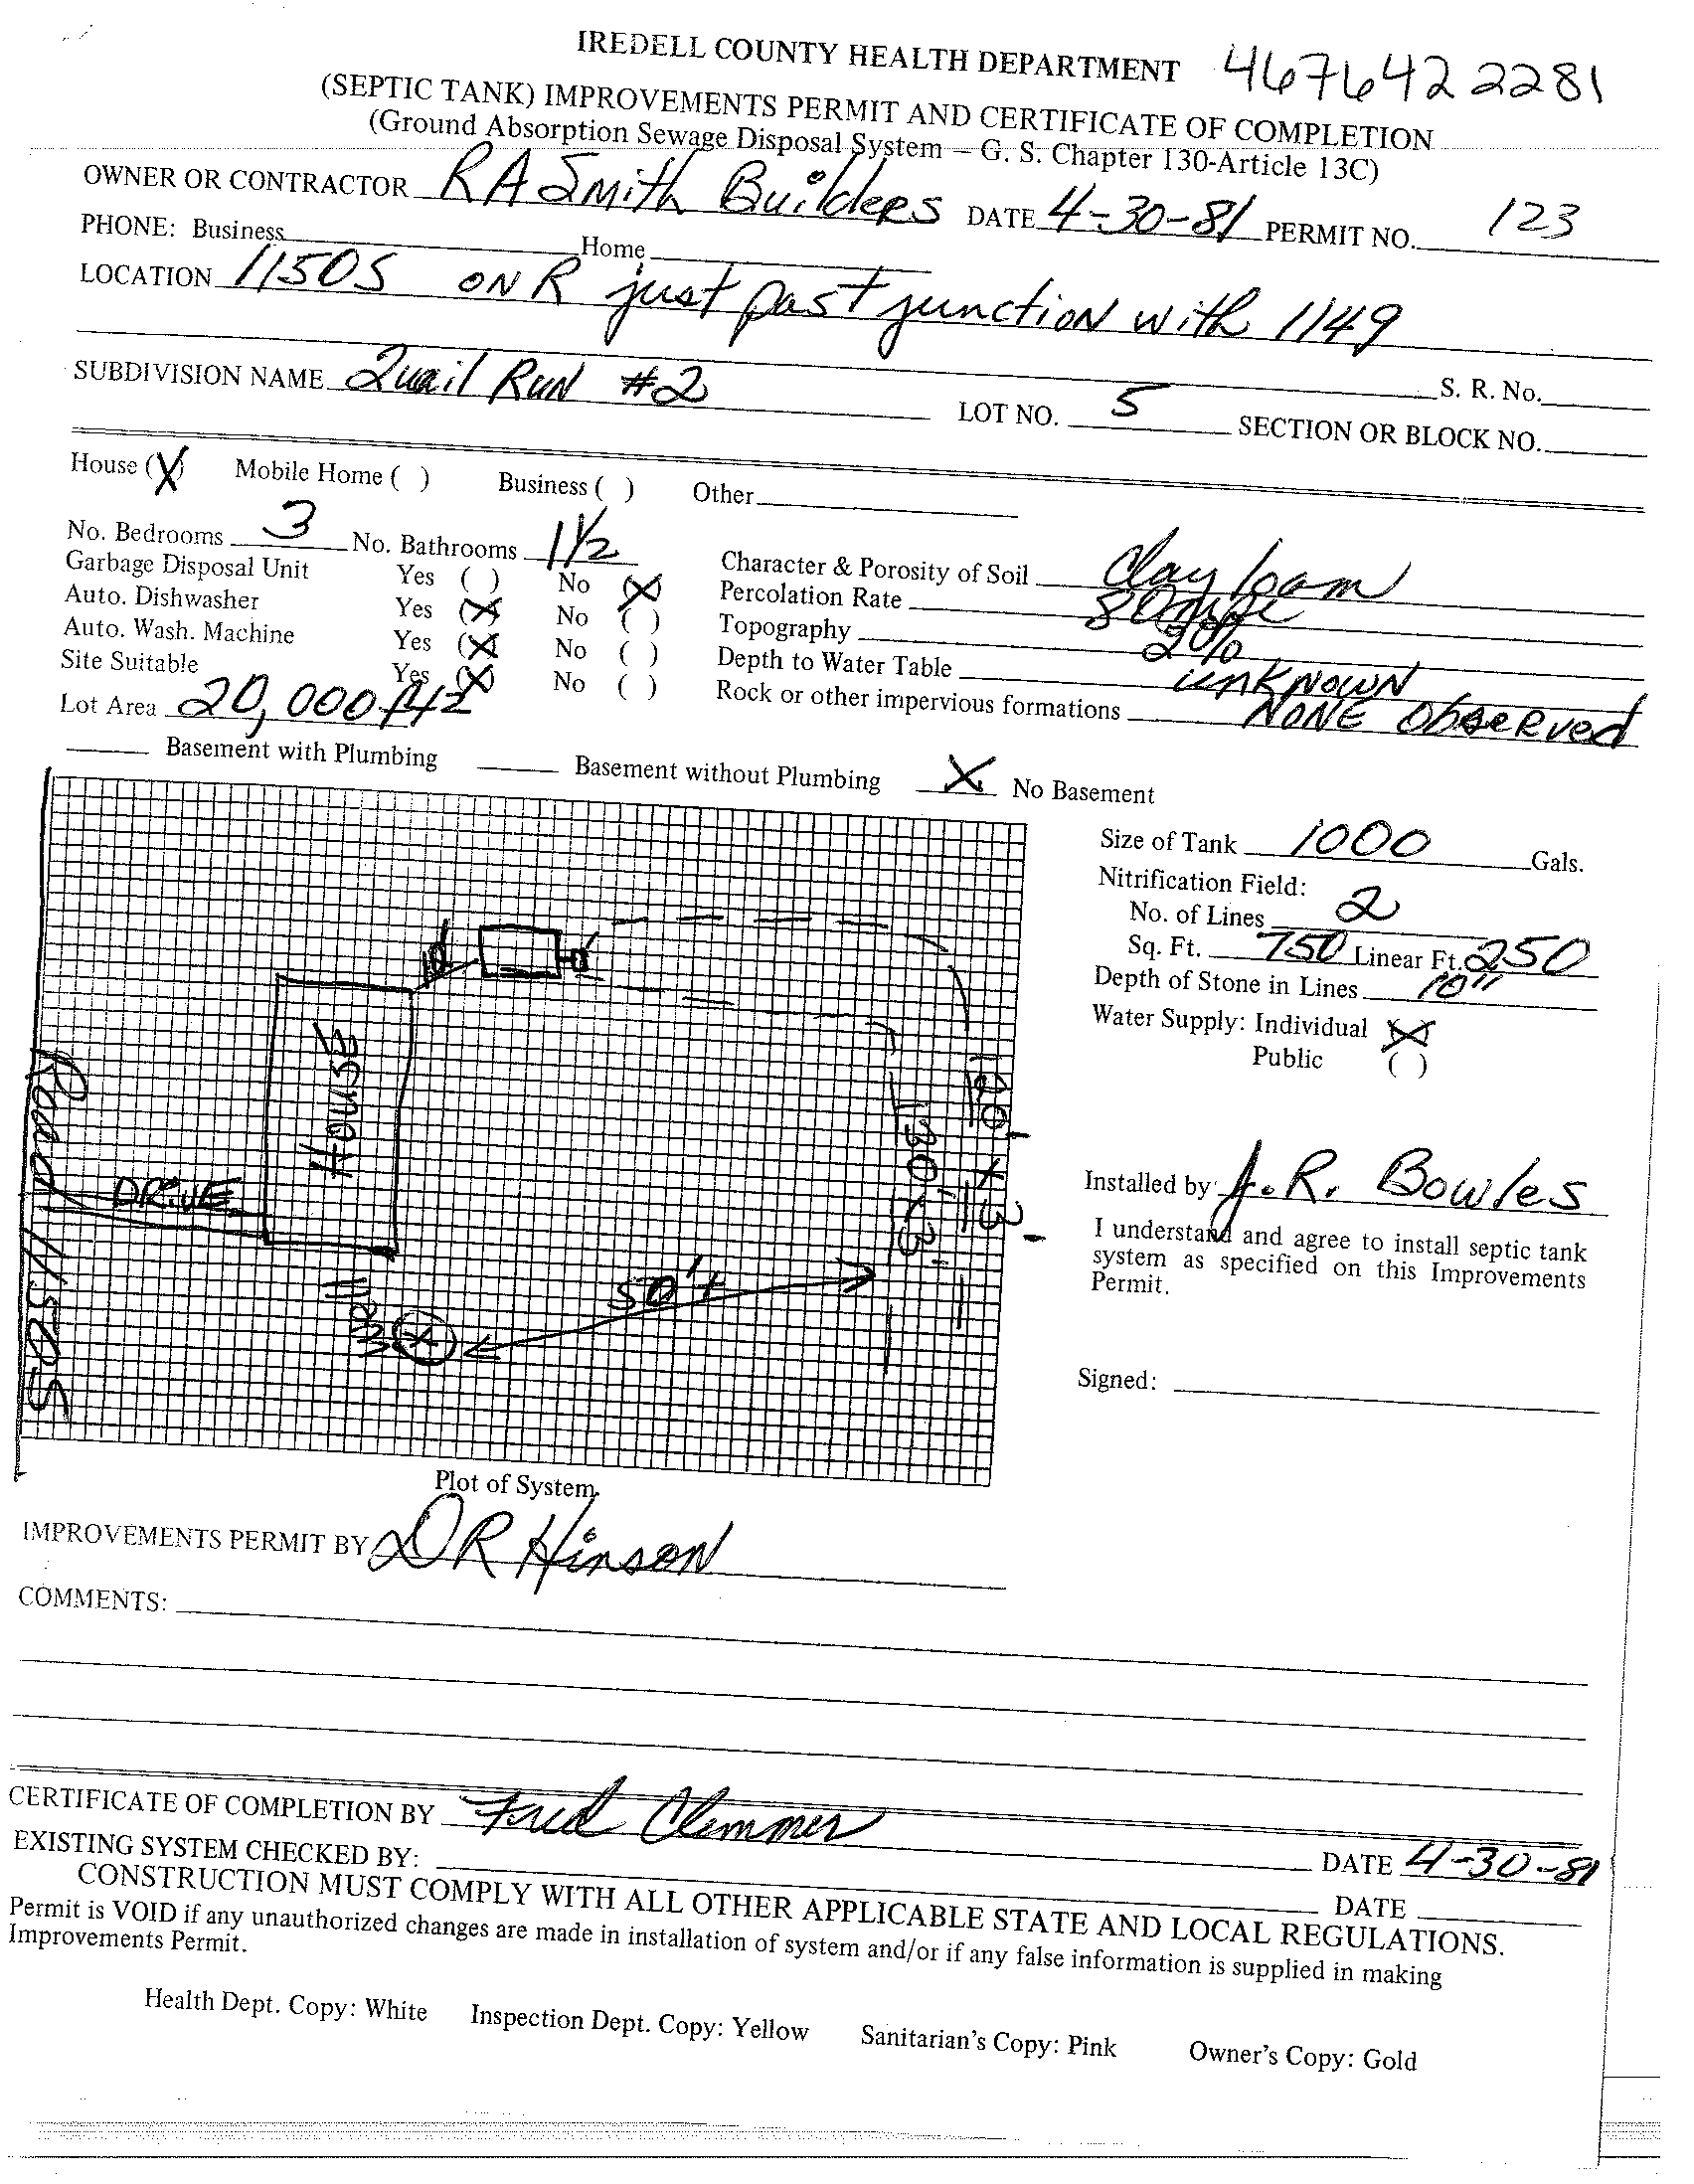 IREDELL COUNTY HEALTH DEPARTMENT 4676422281
(SEPTIC TANK) IMPROVEMENTS PERMIT AND CERTIFICATE OF COMPLETION
(Ground Absorption Sewage Disposal System – G. S. Chapter 130-Article 13C)
OWNER OR CONTRACTOR RA Smith Builders DATE 4-30-81 PERMIT NO. 123
PHONE: Business Home
LOCATION 1150S ON R just past junction with 1149
S. R. No.
SUBDIVISION NAME Quail Run #2 LOT NO. 5 SECTION OR BLOCK NO.
House (X) Mobile Home ( ) Business ( ) Other
No. Bedrooms 3 No. Bathrooms 1½
Garbage Disposal Unit Yes ( ) No (X)
Auto. Dishwasher Yes (X) No ( )
Auto. Wash. Machine Yes (X) No ( )
Site Suitable Yes (X) No ( )
Lot Area 20,000 ft2
Character & Porosity of Soil Clay loam
Percolation Rate 80 mpi
Topography 2%
Depth to Water Table unknown
Rock or other impervious formations NONE Observed
Basement with Plumbing Basement without Plumbing X No Basement
Size of Tank 1000 Gals.
Nitrification Field:
No. of Lines 2
Sq. Ft. 750 Linear Ft. 250
Depth of Stone in Lines 10"
Water Supply: Individual (X)
Public ( )
Installed by J.R. Bowles
I understand and agree to install septic tank
system as specified on this Improvements
Permit.
Signed:
Road 1150S
DRIVE
HOUSE
Well
50'+
130'x3'
120'x3'
Plot of System
IMPROVEMENTS PERMIT BY DR Hinson
COMMENTS:
CERTIFICATE OF COMPLETION BY Fred Clemmer DATE 4-30-81
EXISTING SYSTEM CHECKED BY: DATE
CONSTRUCTION MUST COMPLY WITH ALL OTHER APPLICABLE STATE AND LOCAL REGULATIONS.
Permit is VOID if any unauthorized changes are made in installation of system and/or if any false information is supplied in making
Improvements Permit.
Health Dept. Copy: White Inspection Dept. Copy: Yellow Sanitarian's Copy: Pink Owner's Copy: Gold